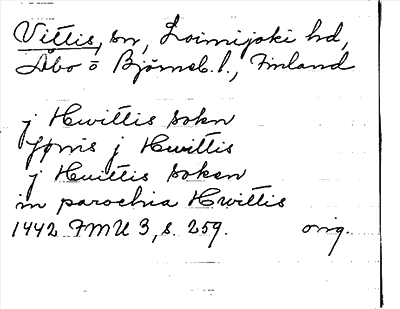 Vittis, sn, Loimijoki hd,
Åbo o Björneb. l., Finland
j Hwittis sokn
j Hwittis
j Huittis soken
in parochia Hwittis
1442 FMU 3, s. 259. orig.